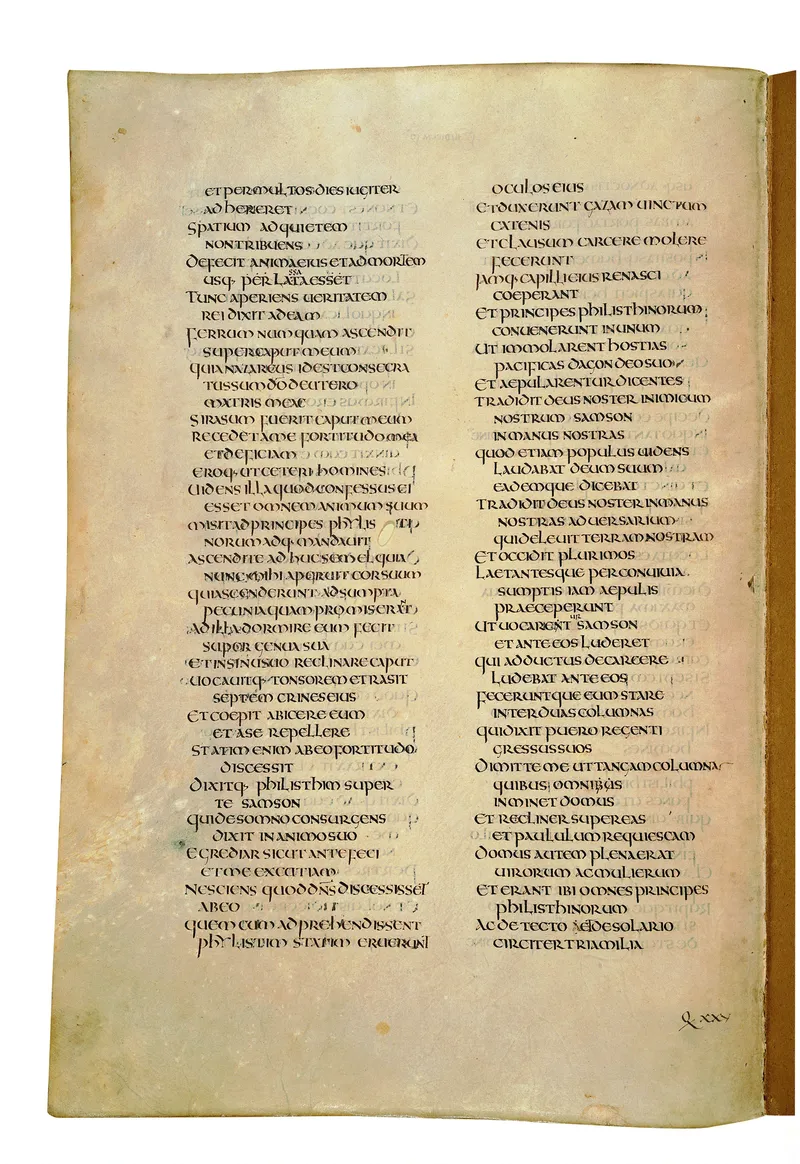 et per multos dies iugiter
adhereret
spatium ad quietem
non tribuens
defecit anima eius et ad mortem
usq· per lataesset
ssa
tunc aperiens ueritatem
rei dixit ad eam
ferrum numquam ascendit
super caput meum
quia nazareus id est consecra
tus sum dō de utero
matris meae
si rasum fuerit caput meum
recedet a me fortitudo mea
et deficiam
eroq· ut ceteri homines
uidens illa quod confessus ei
esset omnem animum suum
misit ad principes phylis ti
norum adq· mandauit
ascendite adhuc semel quia
nunc mihi aperuit cor suum
qui ascenderunt adsumpta
pecunia quam promiserāt
ad illa dormire eum fecit
super genua sua
et in sinu suo reclinare caput
uocauitq· tonsorem et rasit
septem crines eius
et coepit abicere eum
et a se repellere
statim enim ab eo fortitudo
discessit
dixitq· philisthim super
te samson
qui de somno consurgens
dixit in animo suo
egrediar sicut ante feci
et me excutiam
nesciens quod dns̄ discessisset
ab eo
quem cum adprehendissent
philistim statim eruerunt
oculos eius
et duxerunt gazam uinctum
catenis
et clausum carcere molere
fecerunt
iamq· capilli eius renasci
coeperant
et principes philisthinorum
conuenerunt in unum
ut immolarent hostias
pacificas dagon deo suo
et aepularentur dicentes
tradidit deus noster inimicum
nostrum samson
in manus nostras
quod etiam populus uidens
laudabat deum suum
eademque dicebat
tradidit deus noster in manus
nostras aduersarium
qui deleuit terram nostram
et occidit plurimos
laetantesque per conuiuia
sumptis iam aepulis
praeceperunt
ut uocarent samson
et ante eos luderet
qui adductus de carcere
ludebat ante eos
feceruntque eum stare
inter duas columnas
qui dixit puero regenti
gressus suos
dimitte me ut tangam columna
quibus omnibus
inminet domus
et recliner super eas
et paululum requiescam
domus autem plena erat
uirorum ac mulierum
et erant ibi omnes principes
philisthinorum
ac de tecto et de solario
circiter tria milia
Q xxv